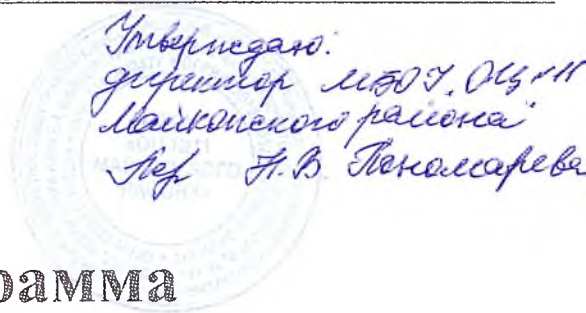 Утверждаю:
директор МБОУ "ОЦ №11
Майкопского района"
Н.В. Пономарева
рамма